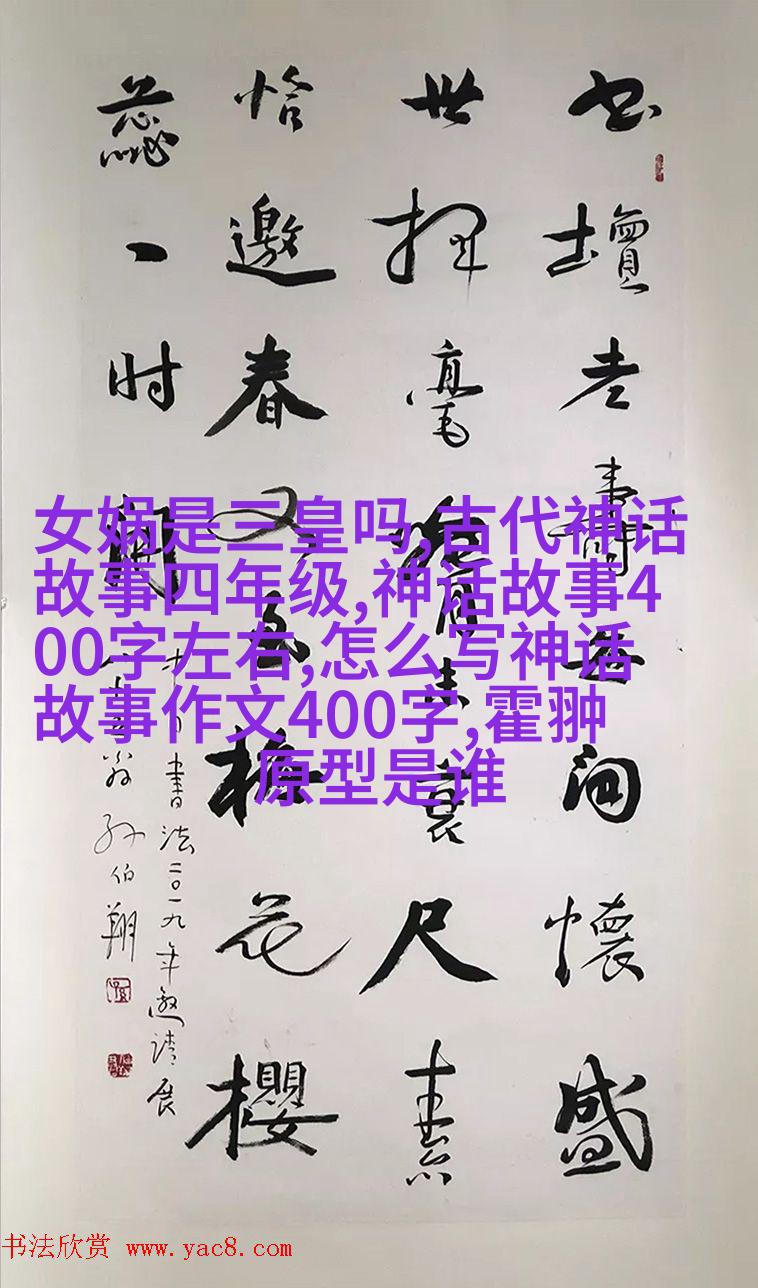 书壇老壽懷盛
世揮毫未衰尺素
恰邀春又梅花櫻
蕊一时開
書法二〇一九年邀請展
翁孙伯翔
女娲是三皇吗,古代神话
故事四年级,神话故事4
00字左右,怎么写神话
故事作文400字,霍翀
原型是谁
书法欣赏 www.yac8.com